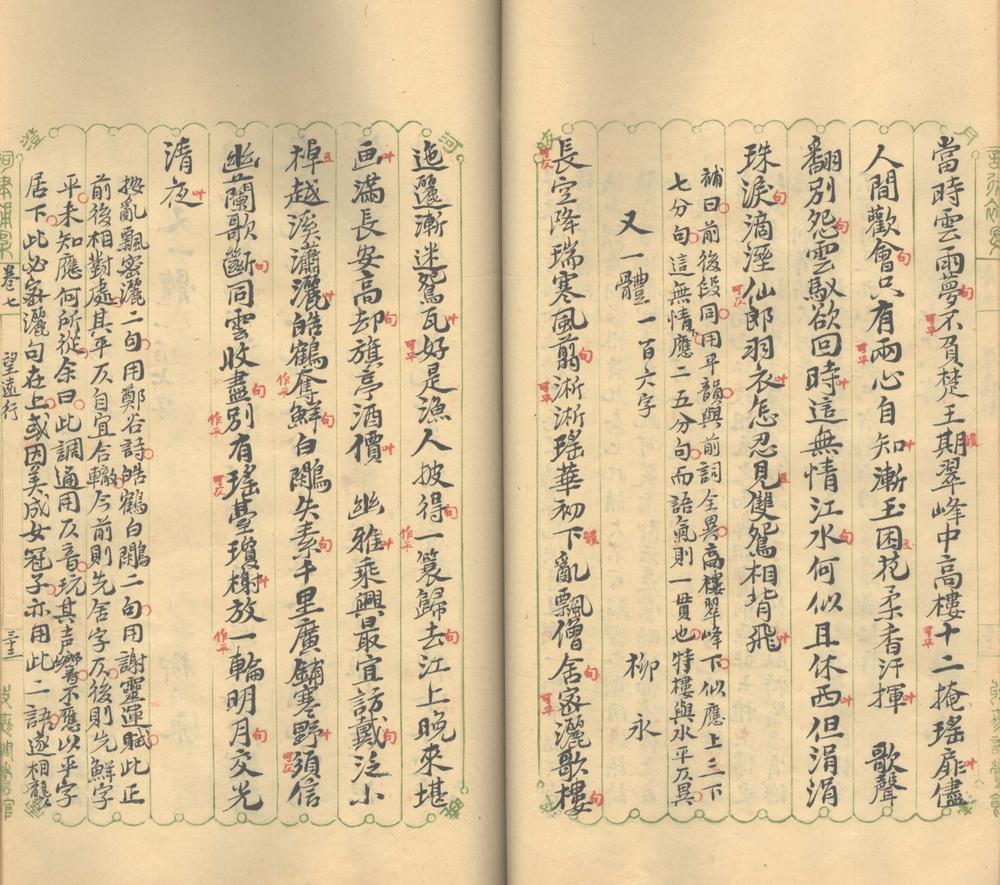 當時雲雨夢不負楚王期翠峰中高樓十二掩瑤扉儘
人間歡會只有兩心自知漸玉困花柔香汗揮　歌聲
翻別怨雲馭欲回時這無情江水何似且休西但涓涓
珠淚滴溼仙郎羽衣怎忍見雙鴛相背飛
補曰前後段同用平韻與前詞全異高樓翠峰下似應上三下
七分句這無情應二五分句而語氣則一貫也特樓與水平仄異
又一體　一百六字　柳永
長空降瑞寒風翦淅淅瑤華初下亂飄僧舍密灑歌樓
迤邐漸迷鴛瓦好是漁人披得一蓑歸去江上晚來堪
画滿長安高却旗亭酒價　幽雅乘興最宜訪戴泛小
棹越溪瀟灑皓鶴奪鮮白鷴失素千里廣鋪寒野須信
幽蘭歌斷同雲收盡別有瑤臺瓊榭放一輪明月交光
清夜
按亂飄密灑二句用鄭谷詩皓鶴白鷴二句用謝靈運賦此正
前後相對處其平仄自宜合轍今前則先舍字仄後則先鮮字
平未知應何所從余曰此調通用仄音玩其声響不應以平字
居下此必密灑句在上或因美成女冠子亦用此二語遂相襲
卷七
望遠行
三十三